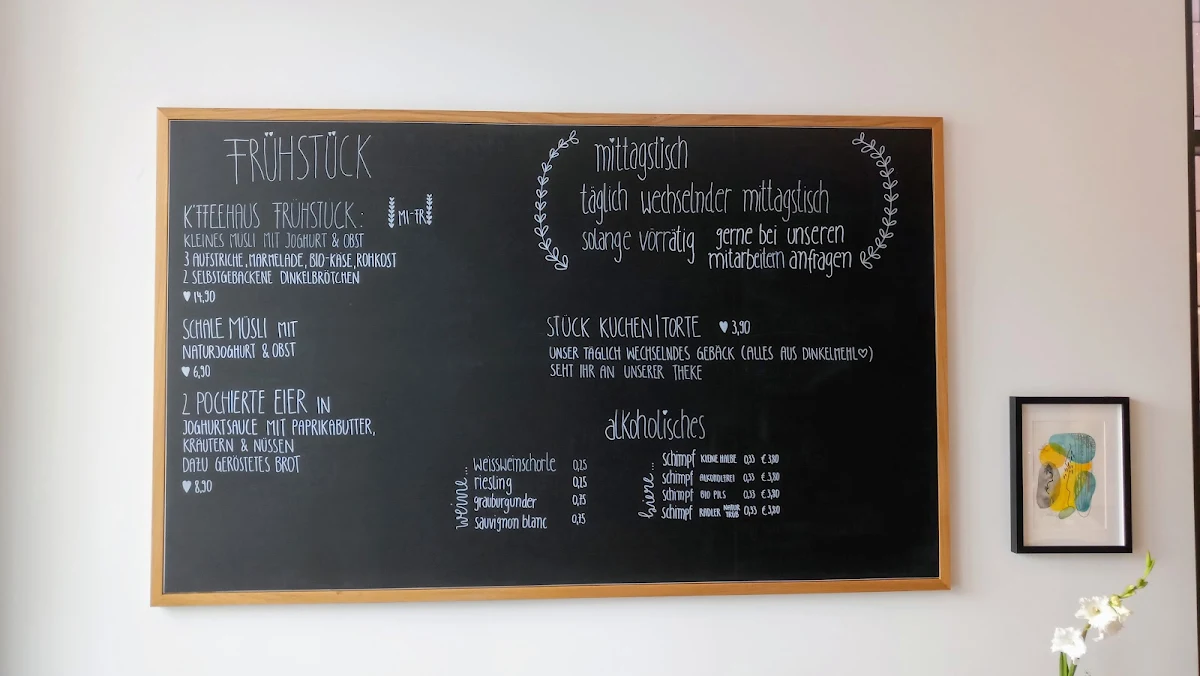 FRÜHSTÜCK
K'FFEEHAUS FRÜHSTÜCK: MI-FR
KLEINES MÜSLI MIT JOGHURT & OBST
3 AUFSTRICHE, MARMELADE, BIO-KÄSE, ROHKOST
2 SELBSTGEBACKENE DINKELBRÖTCHEN
♥ 14,90
SCHALE MÜSLI MIT
NATURJOGHURT & OBST
♥ 6,90
2 POCHIERTE EIER IN
JOGHURTSAUCE MIT PAPRIKABUTTER,
KRÄUTERN & NÜSSEN
DAZU GERÖSTETES BROT
♥ 8,90
mittagstisch
täglich wechselnder mittagstisch
solange vorrätig gerne bei unseren
mitarbeitern anfragen
STÜCK KUCHEN|TORTE ♥ 3,90
UNSER TÄGLICH WECHSELNDES GEBÄCK (ALLES AUS DINKELMEHL♡)
SEHT IHR AN UNSERER THEKE
alkoholisches
weine...
weissweinschorle 0,25
riesling 0,25
grauburgunder 0,75
sauvignon blanc 0,75
biere...
schimpf KLEINE HALBE 0,33 € 3,80
schimpf ALKOHOLFREI 0,33 € 3,80
schimpf BIO PILS 0,33 € 3,80
schimpf RADLER NATUR TRÜB 0,33 € 3,80